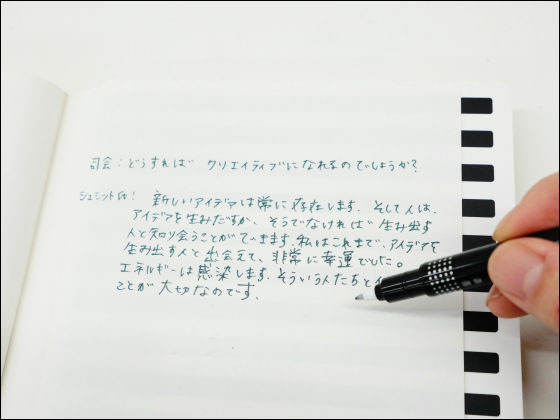 司会：どうすれば クリエイティブになれるのでしょうか？
シュミット氏： 新しいアイデアは常に存在します。そして人は、
アイデアを生みだすか、そうでなければ 生み出す
人と知り合うことができます。私はこれまで、アイデアを
生み出す人と出会えて、非常に幸運でした。
エネルギーは感染します。そういう人たちと
ことが大切なのです。